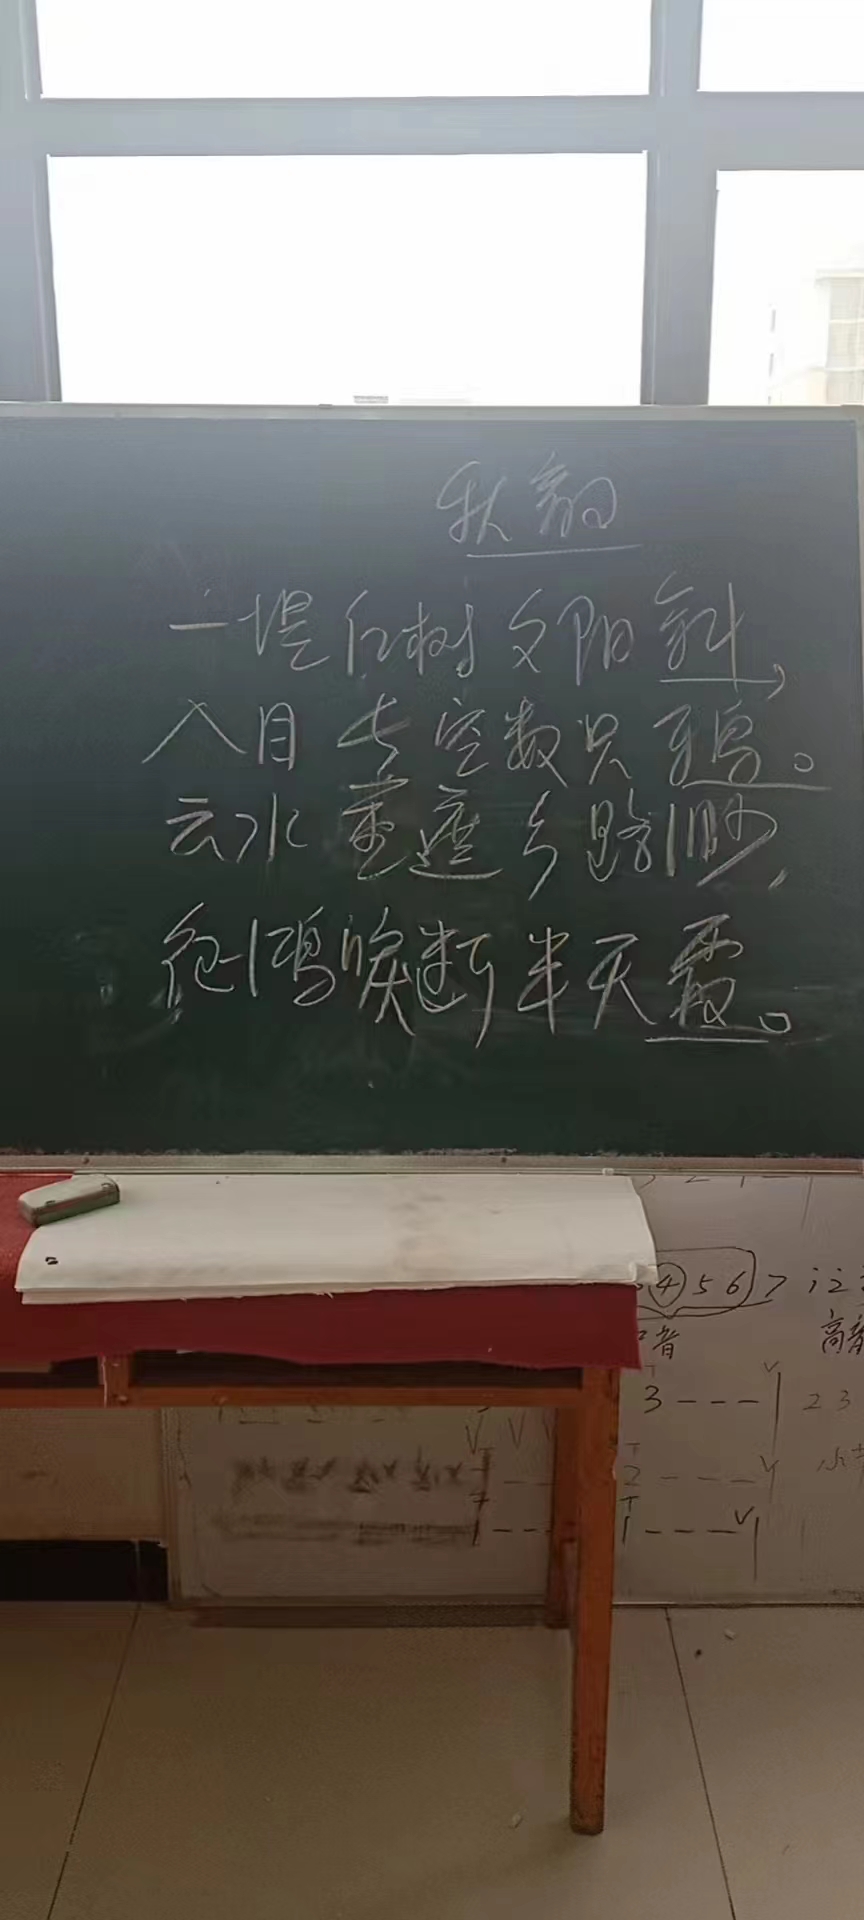 秋韵
一堤红树夕阳斜，
入目长空数只鸦。
云水重遮乡路渺，
征鸿唳断半天霞。
④ 5 6 7 i 2
高音
3 - - - | 2 3
2 - - -
1 - - - |